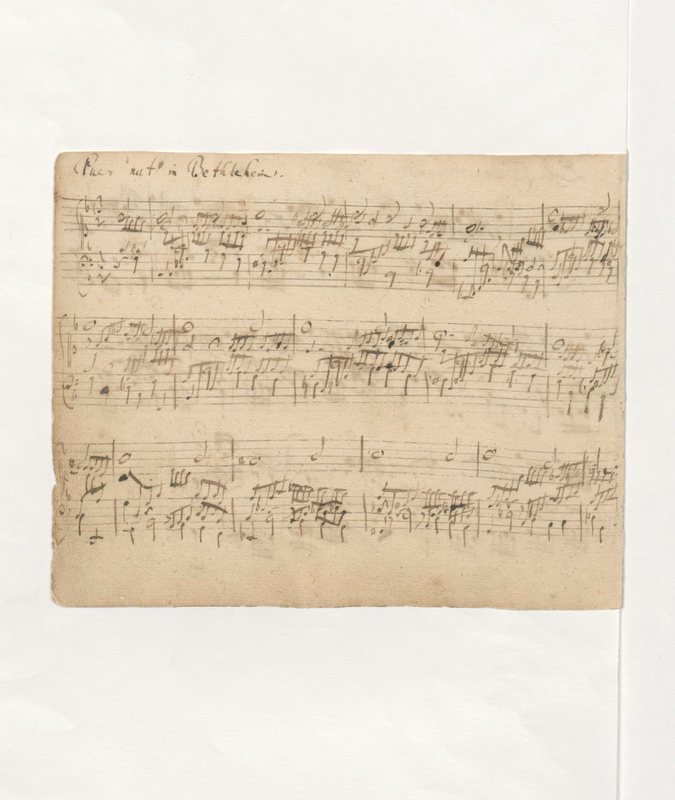 Puer nat⁹ in Bethlehem.